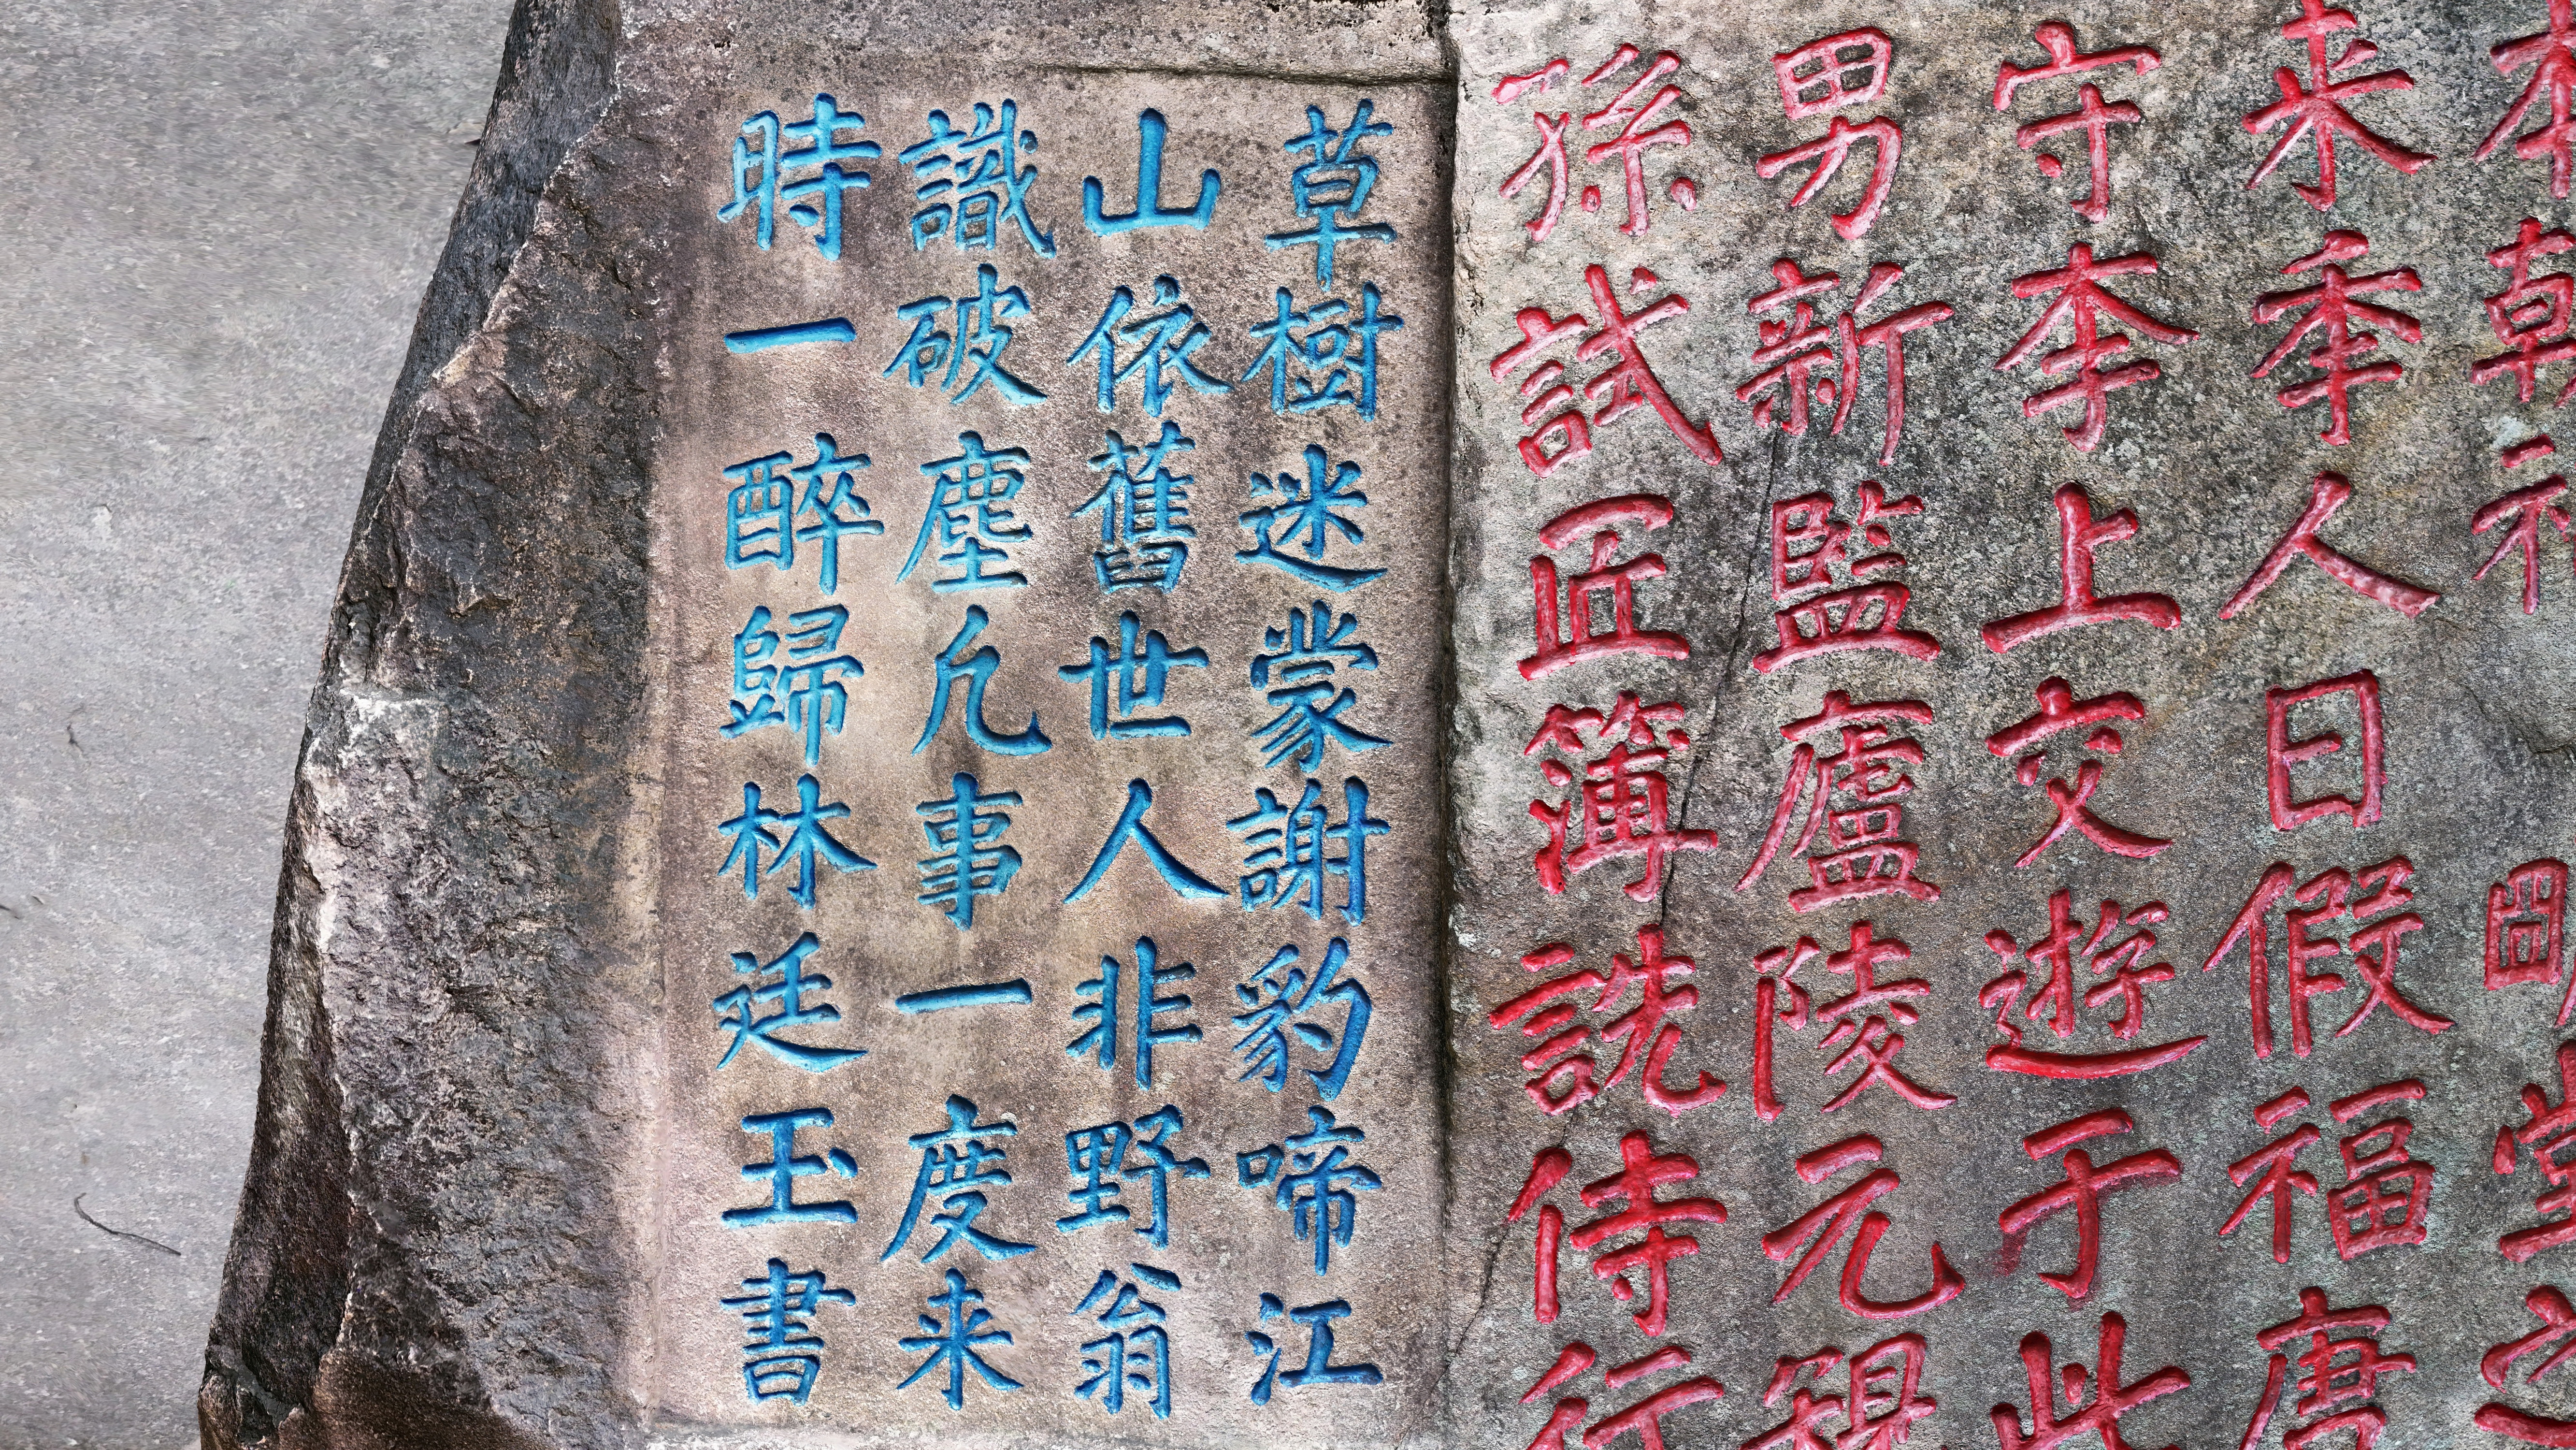 来季人日假福唐
守李上交遊于此
男新監廬陵元
孫試匠簿詵侍行
草樹迷蒙謝豹啼江
山依舊世人非野翁
識破塵凢事一度来
時一醉歸林廷玉書